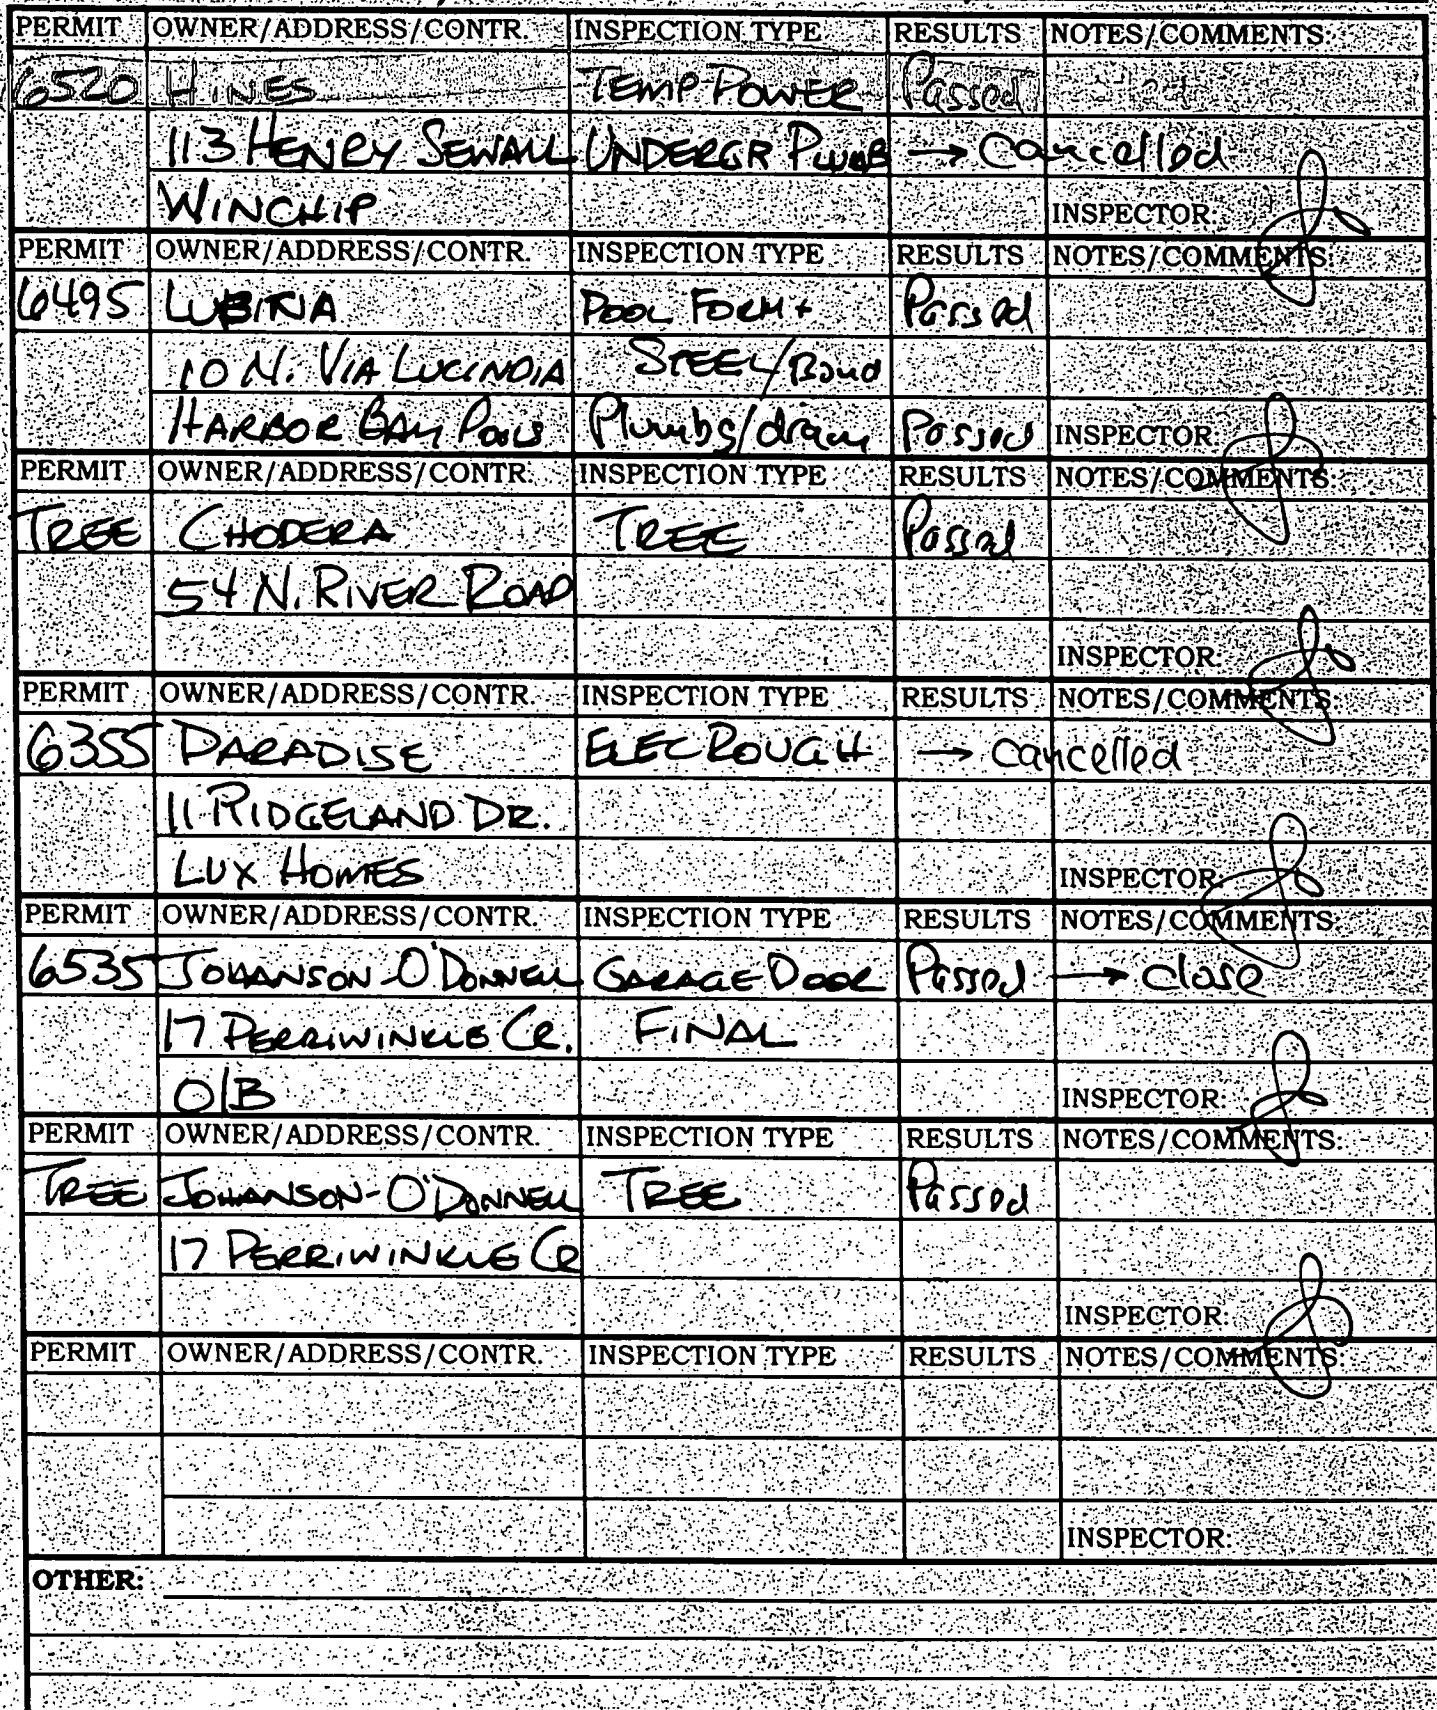 PERMIT OWNER/ADDRESS/CONTR. INSPECTION TYPE RESULTS NOTES/COMMENTS:
6520 HINES TEMP POWER Passed
113 HENRY SEWALL UNDERGR PLUMB → Cancelled
WINCHIP INSPECTOR:
PERMIT OWNER/ADDRESS/CONTR. INSPECTION TYPE RESULTS NOTES/COMMENTS:
6495 POOL FORM + Passed
10 N. VIA LUCINDIA STEEL/Bond
HARBOR BAY POOLS Plumbg/drain Passed INSPECTOR:
PERMIT OWNER/ADDRESS/CONTR. INSPECTION TYPE RESULTS NOTES/COMMENTS:
TREE CHODERA TREE Passed
54 N. RIVER ROAD
INSPECTOR:
PERMIT OWNER/ADDRESS/CONTR. INSPECTION TYPE RESULTS NOTES/COMMENTS:
6355 PARADISE ELEC ROUGH → cancelled
11 RIDGELAND DR.
LUX HOMES INSPECTOR:
PERMIT OWNER/ADDRESS/CONTR. INSPECTION TYPE RESULTS NOTES/COMMENTS:
6535 JOHANSON-O'DONNELL GARAGE DOOR Passed → close
17 PERRIWINKLE CR. FINAL
O/B INSPECTOR:
PERMIT OWNER/ADDRESS/CONTR. INSPECTION TYPE RESULTS NOTES/COMMENTS:
TREE JOHANSON-O'DONNELL TREE Passed
17 PERRIWINKLE CR
INSPECTOR:
PERMIT OWNER/ADDRESS/CONTR. INSPECTION TYPE RESULTS NOTES/COMMENTS:
INSPECTOR:
OTHER: